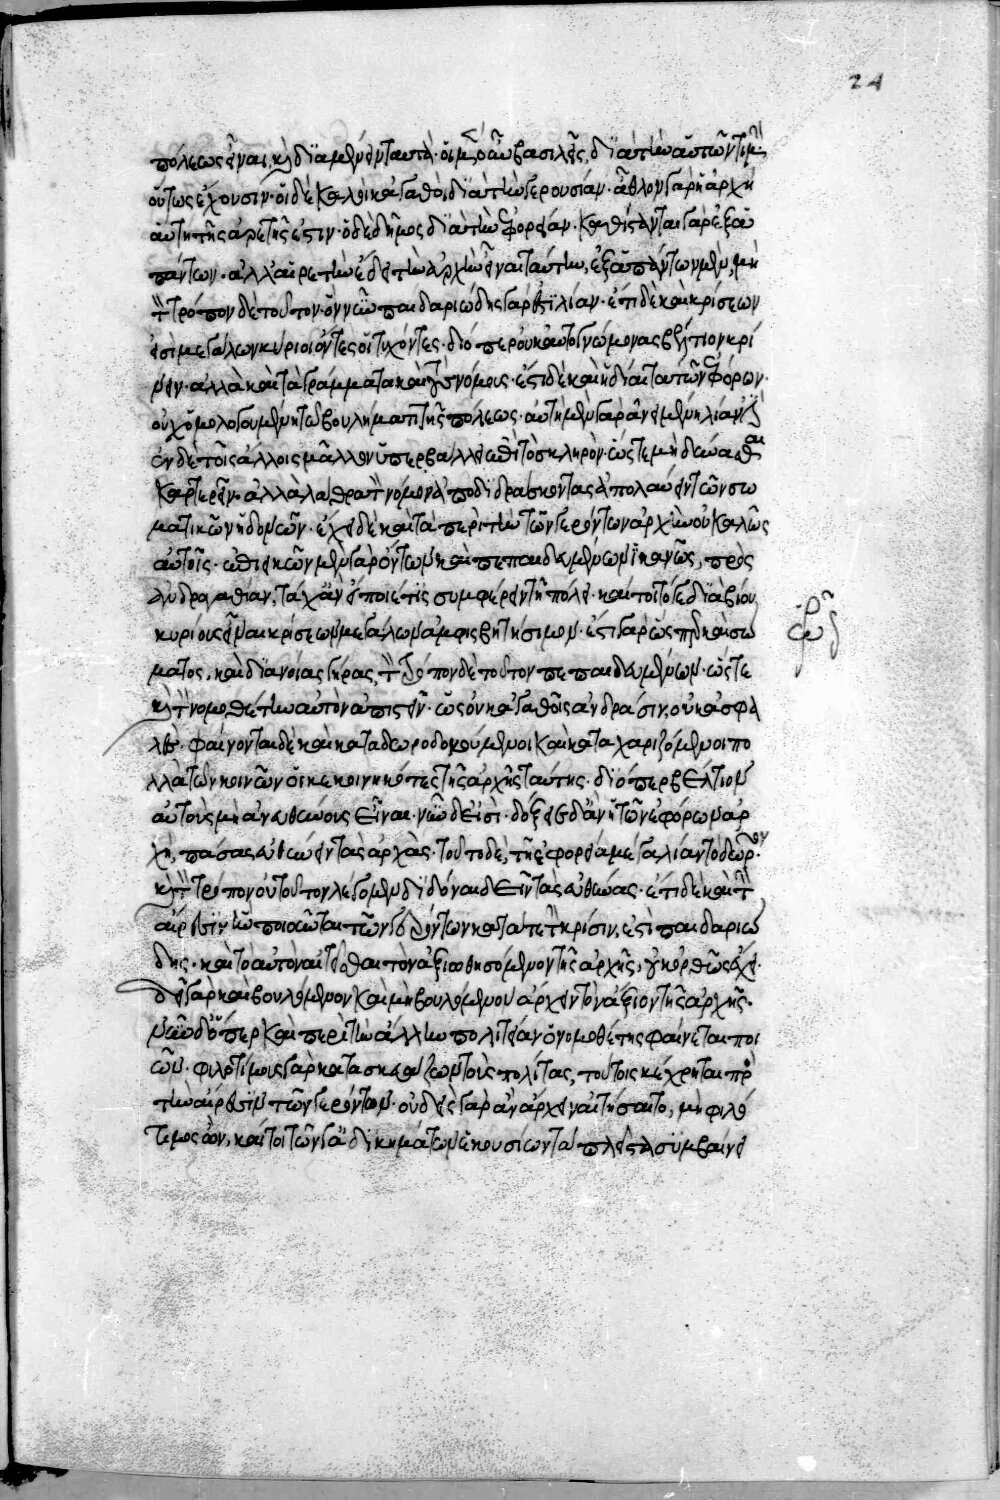 24
πόλεως εἶναι, καὶ διαμένειν ταυτά· οἱ μὲν οὖν βασιλεῖς, διὰ τὴν αὑτῶν τιμὴν
οὕτως ἔχουσιν· οἱ δὲ καλοὶ κἀγαθοὶ διὰ τὴν γερουσίαν· ἆθλον γὰρ ἡ ἀρχὴ
αὕτη τῆς ἀρετῆς ἐστιν· ὁ δὲ δῆμος διὰ τὴν ἐφορείαν· καθίσταται γὰρ ἐξ ἁ
πάντων· ἀλλ' αἱρετὴν ἔδει τὴν ἀρχὴν εἶναι ταύτην, ἐξ ἁπάντων μὲν, μὴ
τὸν τρόπον δὲ τοῦτον ὃν νῦν παιδαριώδης γάρ ἐστι λίαν· ἔτι δὲ καὶ κρίσεων
εἰσὶ μεγάλων κύριοι ὄντες οἱ τυχόντες· διόπερ οὐκ αὐτογνώμονας βέλτιον κρί
νειν· ἀλλὰ κατὰ γράμματα καὶ τοὺς νόμους· ἔστι δὲ καὶ ἡ δίαιτα τῶν ἐφόρων·
οὐχ ὁμολογουμένη τῷ βουλήματι τῆς πόλεως· αὐτὴ μὲν γὰρ ἀνειμένη λίαν ἐστίν
ἐν δὲ τοῖς ἄλλοις μᾶλλον ὑπερβάλλει ἐπὶ τὸ σκληρόν· ὥστε μὴ δύνασθαι
καρτερεῖν· ἀλλὰ λάθρα τὸν νόμον ἀποδιδράσκοντας ἀπολαύειν τῶν σω
ματικῶν ἡδονῶν· ἔχει δὲ καὶ τὰ περὶ τὴν τῶν γερόντων ἀρχὴν οὐ καλῶς
αὐτοῖς· ἐπιεικῶν μὲν γὰρ ὄντων καὶ πεπαιδευμένων ἱκανῶς, πρὸς
ἀνδραγαθίαν, τάχ' ἂν εἴποιέ τις συμφέρειν τῇ πόλει· καίτοι τό γε διὰ βίου
κυρίους εἶναι κρίσεων μεγάλων ἀμφισβητήσιμον· ἔστι γὰρ ὥσπερ καὶ σώ
ματος, καὶ διανοίας γῆρας, τὸν τρόπον δὲ τοῦτον πεπαιδευμένων· ὥστε
καὶ τὸν νομοθέτην αὐτὸν ἀπιστεῖν· ὡς οὐκ ἀγαθοῖς ἀνδράσιν, οὐκ ἀσφα
λές· φαίνονται δὲ καὶ καταδωροδοκούμενοι καὶ καταχαριζόμενοι πο
λλὰ τῶν κοινῶν οἱ κεκοινηκότες τῆς ἀρχῆς ταύτης· διόπερ βέλτιον
αὐτοὺς μὴ ἀνευθύνους εἶναι· νῦν δ' εἰσὶ· δόξειε δ' ἂν ἡ τῶν ἐφόρων ἀρ
χὴ, πάσας εὐθύνειν τὰς ἀρχὰς· τοῦτο δὲ, τῇ ἐφορείᾳ μέγα λίαν τὸ δῶρον·
καὶ τὸν τρόπον οὐ τοῦτον λέγομεν διδόναι δεῖν τὰς εὐθύνας· ἔτι δὲ καὶ τὴν
αἵρεσιν ἣν ποιοῦνται τῶν γερόντων κατά τε τὴν κρίσιν, ἐστὶ παιδαριώ
δης· καὶ τὸ αὐτὸν αἰτεῖσθαι τὸν ἀξιωθησόμενον τῆς ἀρχῆς, οὐκ ὀρθῶς ἔχει·
δεῖ γὰρ καὶ βουλόμενον καὶ μὴ βουλόμενον ἄρχειν τὸν ἄξιον τῆς ἀρχῆς·
νῦν δ' ὅπερ καὶ περὶ τὴν ἄλλην πολιτείαν ὁ νομοθέτης φαίνεται ποι
ῶν· φιλοτίμους γὰρ κατασκευάζων τοὺς πολίτας, τούτοις κέχρηται πρὸς
τὴν αἵρεσιν τῶν γερόντων· οὐδεὶς γὰρ ἂν ἄρχειν αἰτήσαιτο, μὴ φιλό
τιμος ὤν, καίτοι τῶν γ' ἀδικημάτων ἑκουσίων τὰ πλεῖστα συμβαίνει